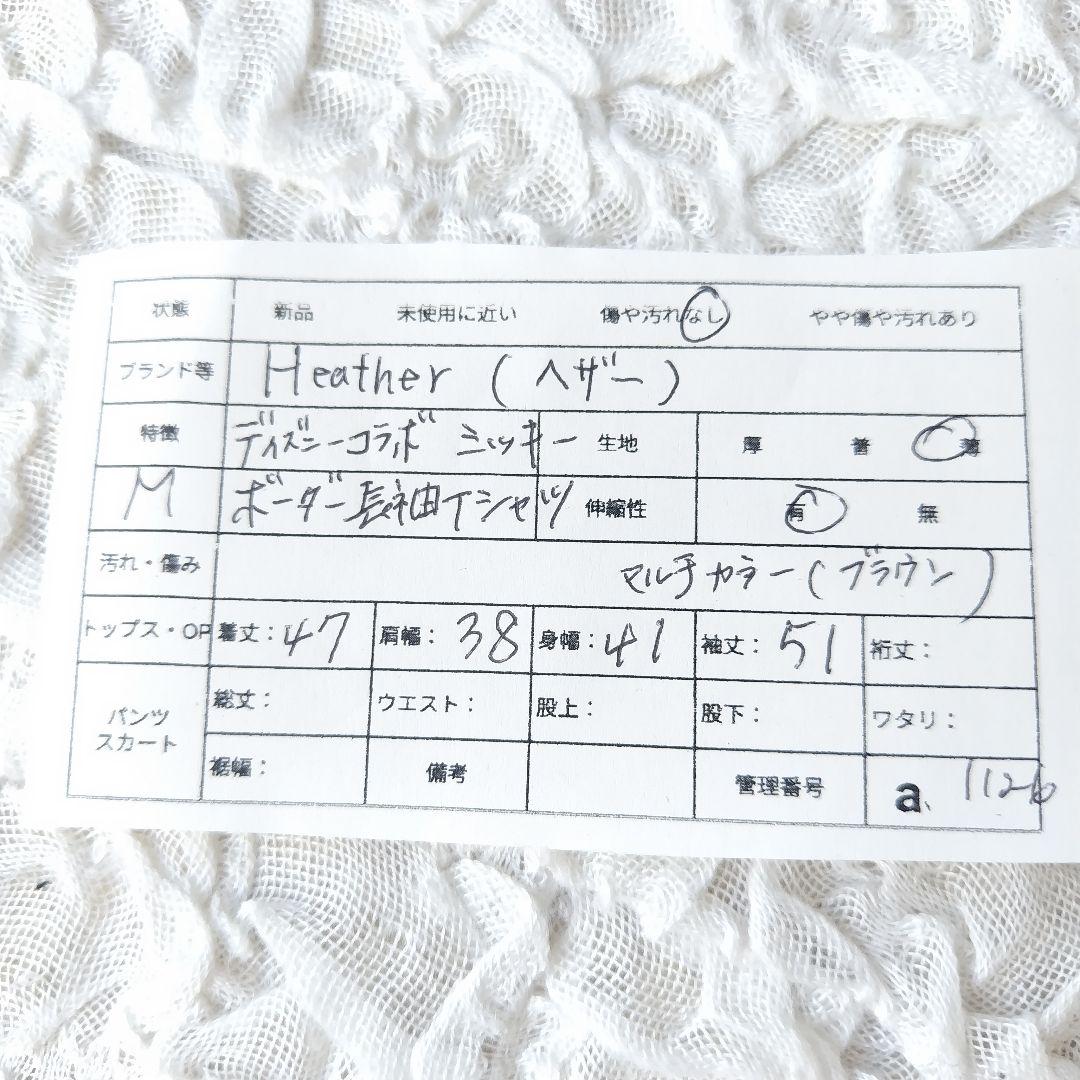 状態 新品 未使用に近い 傷や汚れなし やや傷や汚れあり
ブランド等 Heather (ヘザー)
特徴 ディズニーコラボ ミッキー 生地 厚 普 薄
M ボーダー長袖Tシャツ 伸縮性 有 無
汚れ・傷み マルチカラー(ブラウン)
トップス・OP 着丈:47 肩幅:38 身幅:41 袖丈:51 裄丈:
パンツ スカート 総丈: ウエスト: 股上: 股下: ワタリ:
裾幅: 備考 管理番号 a、1126